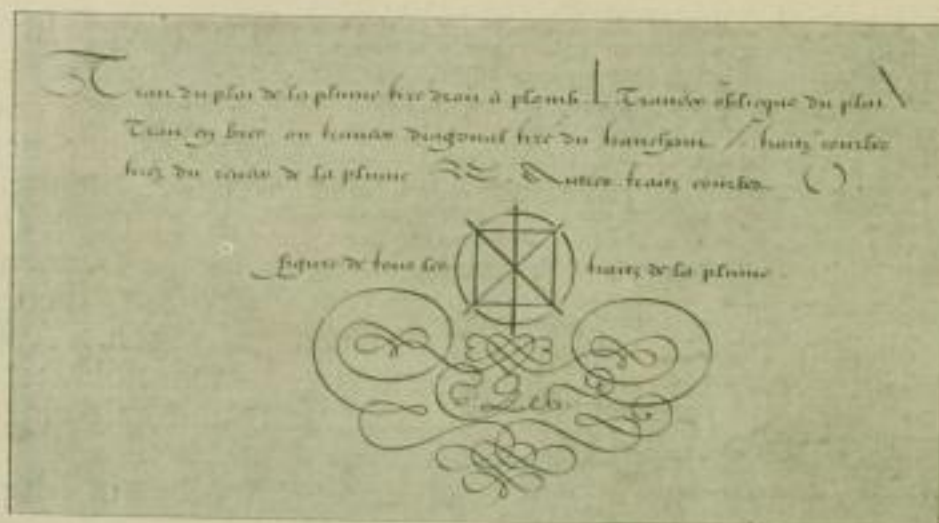 Trait du plat de la plume tiré droit à plomb. Travers oblique du plat
Trait en biez ou travers diagonal tiré du tranchant traitz courbes
tirez du travers de la plume Autres traitz courbes
Figure de tous les traitz de la plume.